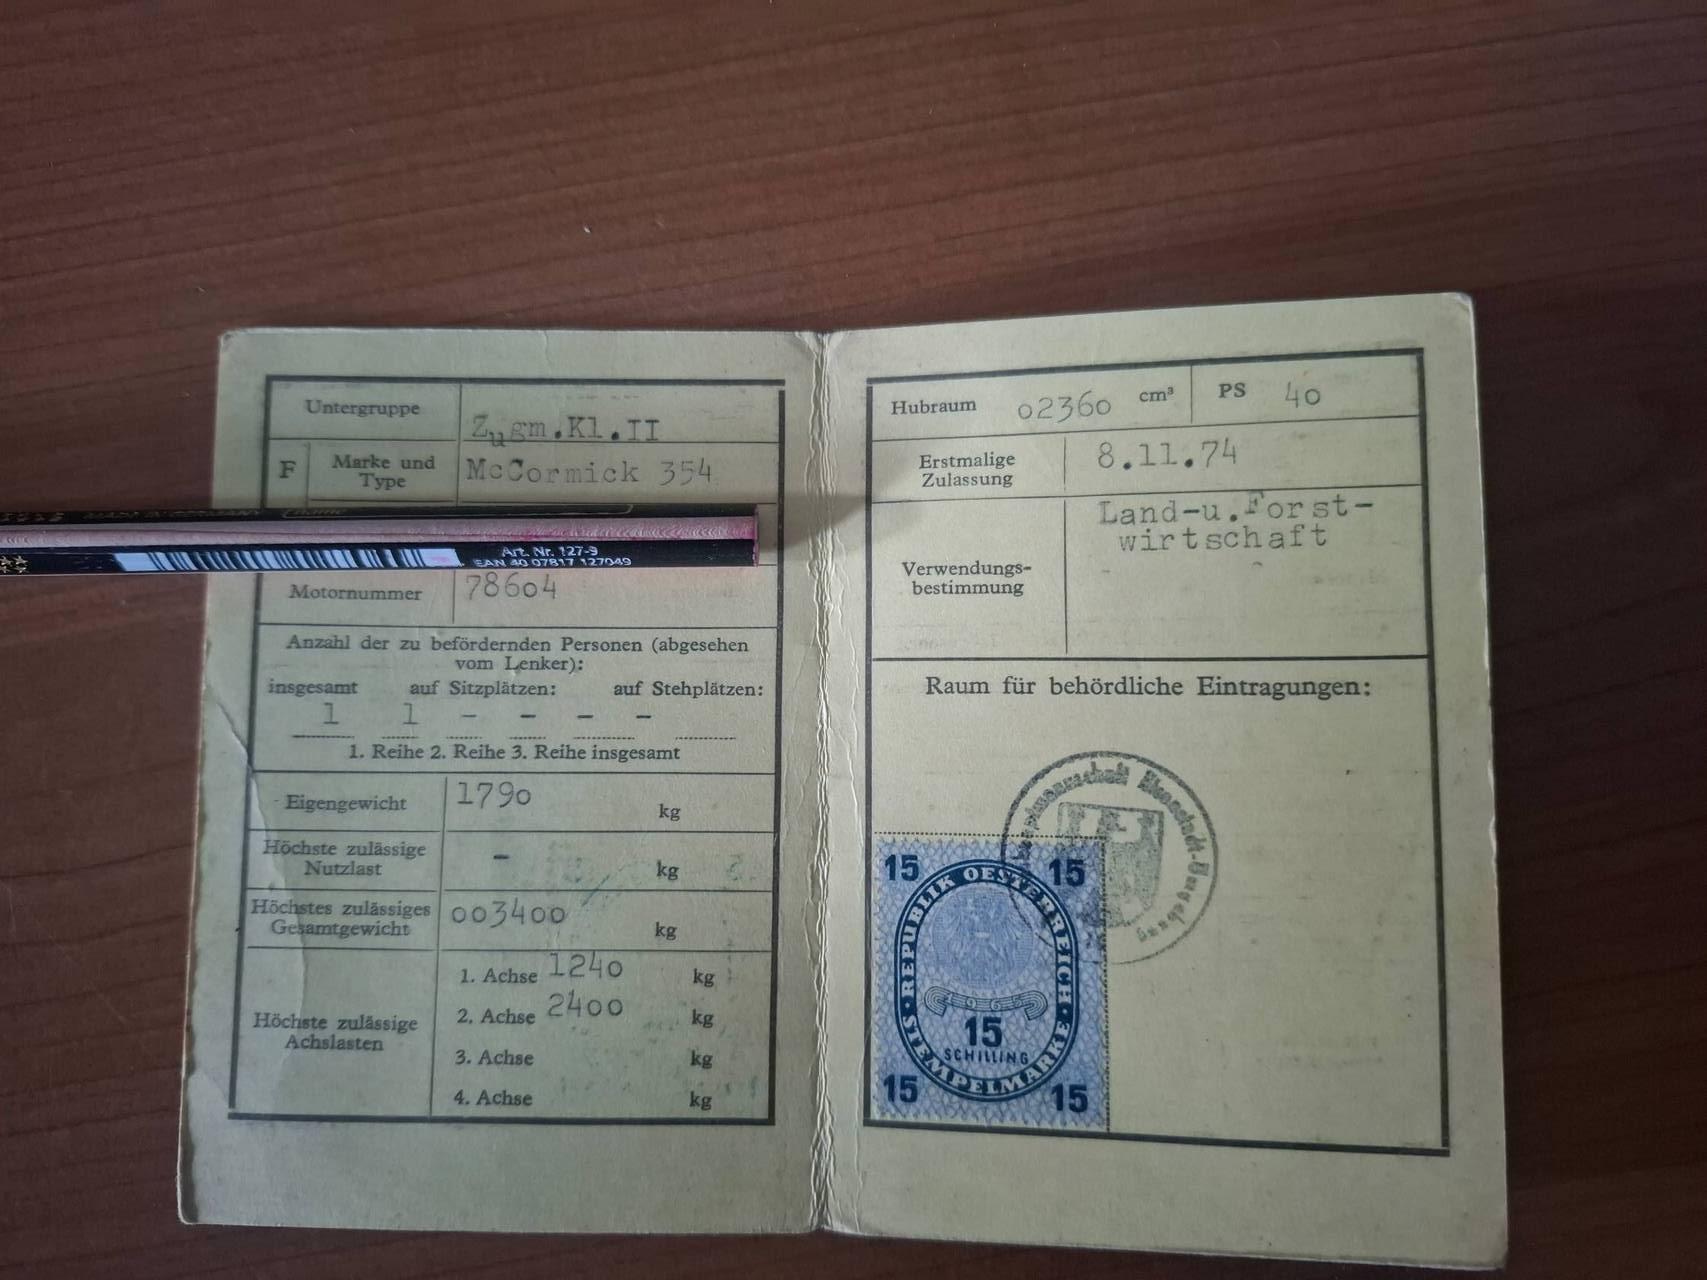 Untergruppe Zugm.Kl.II
F Marke und Type McCormick 354
Art. Nr. 127-9
EAN 40 07817 127049
Motornummer 78604
Anzahl der zu befördernden Personen (abgesehen
vom Lenker):
insgesamt auf Sitzplätzen: auf Stehplätzen:
1 1 – – – –
1. Reihe 2. Reihe 3. Reihe insgesamt
Eigengewicht 1790 kg
Höchste zulässige Nutzlast – kg
Höchstes zulässiges Gesamtgewicht 003400 kg
Höchste zulässige Achslasten
1. Achse 1240 kg
2. Achse 2400 kg
3. Achse kg
4. Achse kg
Hubraum 02360 cm³ PS 40
Erstmalige Zulassung 8.11.74
Verwendungs-
bestimmung
Land-u.Forst-
wirtschaft
Raum für behördliche Eintragungen:
15 15
REPUBLIK OESTERREICH
1965
15
SCHILLING
STEMPELMARKE
15 15